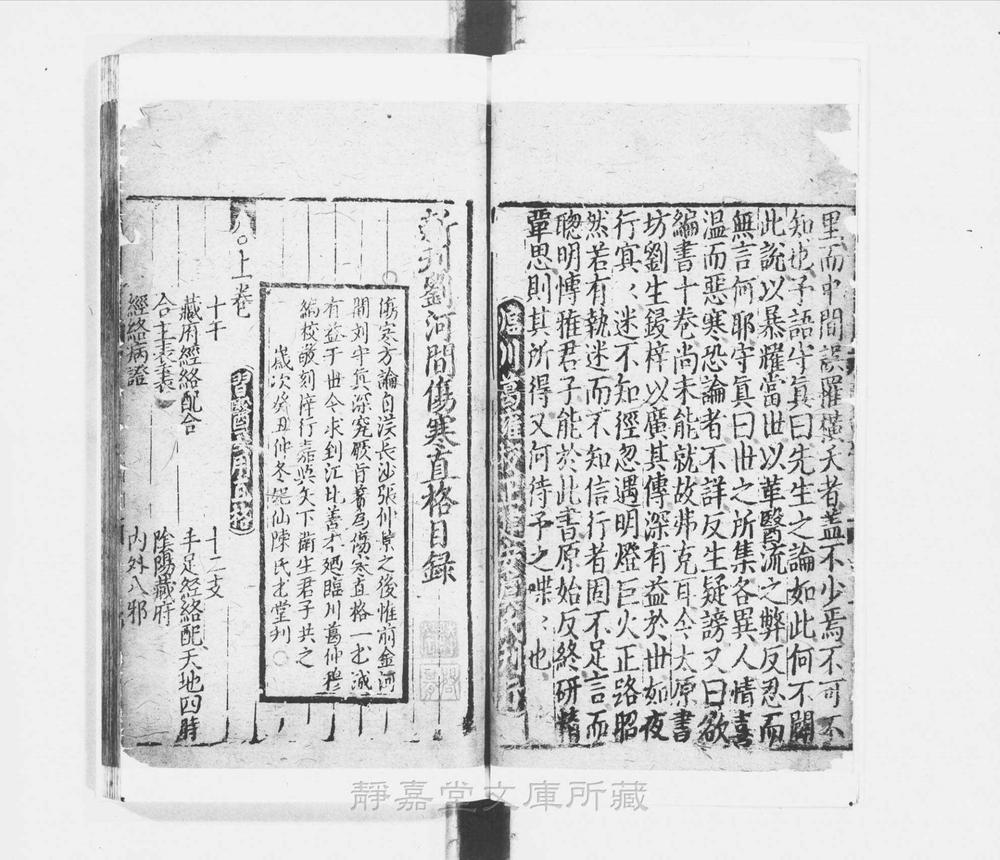 里而中間誤罹横夭者盖不少焉不可不
知也予語守真曰先生之論如此何不闢
此說以暴耀當世以革醫流之弊反忍而
無言何耶守真曰世之所集各異人情喜
温而惡寒恐論者不詳反生疑謗又曰欲
編書十卷尚未能就故弗克耳今太原書
坊劉生鋟梓以廣其傳深有益於世如夜
行冥〻迷不知徑忽遇明燈巨火正路昭
然若有執迷而不知信行者固不足言而
聦明慱雅君子能於此書原始反終研精
覃思則其所得又何待予之喋〻也
臨川葛雍
新刋劉河間傷寒直格目録
○傷寒方論自漢長沙張仲景之後惟前金河
間刘守真深究厥旨著為傷寒直格一书誠
有益于世今求到江北善本廼臨川葛仲穆
編校敬刻梓行嘉與天下衛生君子共之
歳次癸丑仲冬妃仙陳氏书堂刋○
習醫要用直格
○上巻
十干
十二支
藏府經絡配合
手足經絡配天地四時
合主表裏
陰陽藏府
經絡病證
内外八邪
靜嘉堂文庫所藏